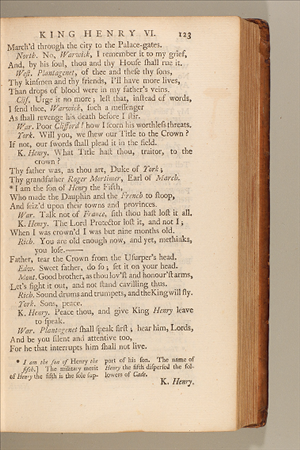 KING HENRY VI. 123
March'd through the city to the Palace-gates.
North. No, Warwick, I remember it to my grief,
And, by his soul, thou and thy House shall rue it.
West. Plantagenet, of thee and these thy sons,
Thy kinsmen and thy friends, I'll have more lives,
Than drops of blood were in my father's veins.
Clif. Urge it no more; lest that, instead of words,
I send thee, Warwick, such a messenger
As shall revenge his death before I stir.
War. Poor Clifford! how I scorn his worthless threats.
York. Will you, we shew our Title to the Crown?
If not, our swords shall plead it in the field.
K. Henry. What Title hast thou, traitor, to the
crown?
Thy father was, as thou art, Duke of York;
Thy grandfather Roger Mortimer, Earl of March.
* I am the son of Henry the Fifth,
Who made the Dauphin and the French to stoop,
And seiz'd upon their towns and provinces.
War. Talk not of France, sith thou hast lost it all.
K. Henry. The Lord Protector lost it, and not I;
When I was crown'd I was but nine months old.
Rich. You are old enough now, and yet, methinks,
you lose.——
Father, tear the Crown from the Usurper's head.
Edw. Sweet father, do so; set it on your head.
Mont. Good brother, as thou lov'st and honour'st arms,
Let's fight it out, and not stand cavilling thus.
Rich. Sound drums and trumpets, and the King will fly.
York. Sons, peace.
K. Henry. Peace thou, and give King Henry leave
to speak.
War. Plantagenet shall speak first; hear him, Lords,
And be you silent and attentive too,
For he that interrupts him shall not live.
* I am the son of Henry the
fifth.] The military merit
of Henry the fifth is the sole sup-
port of his son. The name of
Henry the fifth dispersed the fol-
lowers of Cade.
K. Henry.